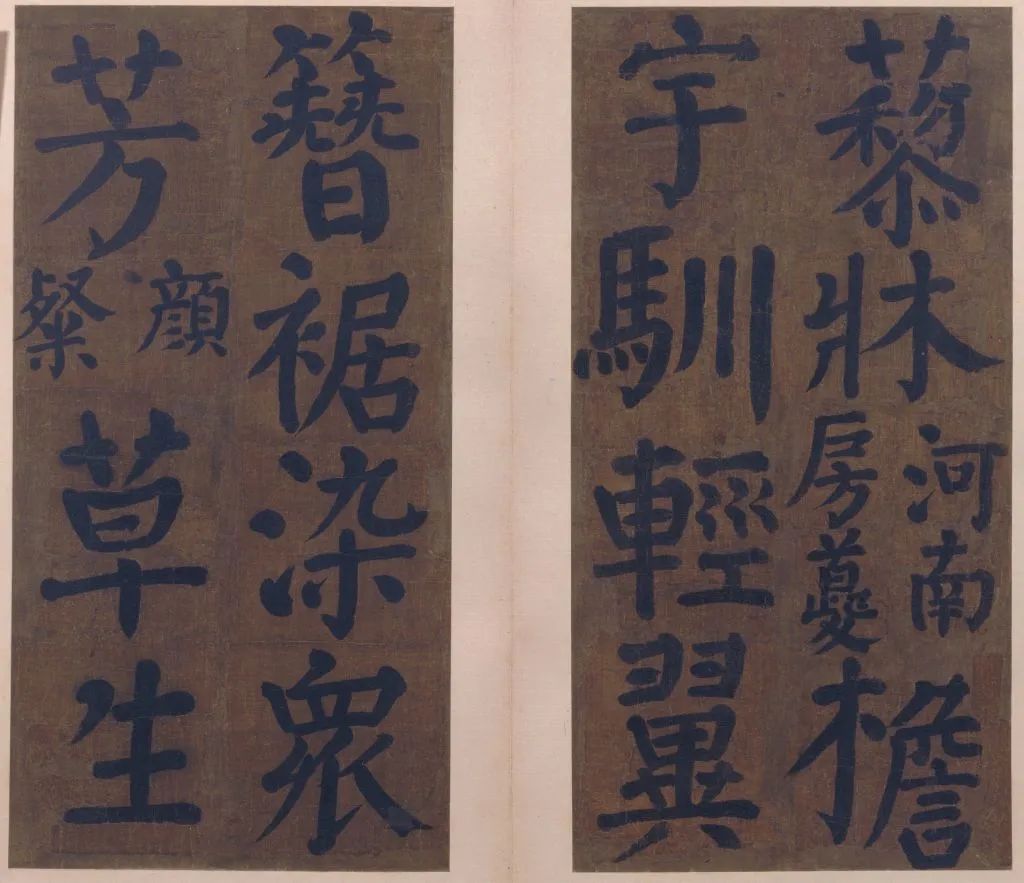 藜牀河南房夔檐
宇馴輕翼
簪裾染衆
芳顏粲草生